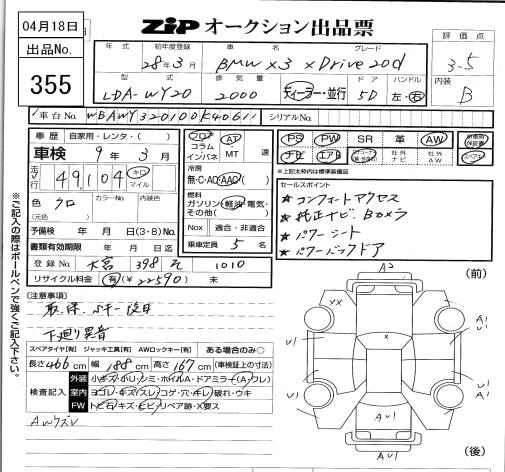 04月18日
ZIP オークション出品票
出品No.
355
年式 初年度登録 車名 グレード 評価点
28年3月 BMW X3 xDrive20d 3-5
型式 排気量 ドア ハンドル 内装
LDA-WY20 2000 ディーラー・並行 5D 左・右 B
車台No. WBAWY320100K40611 シリアルNo.
車歴 自家用・レンタ・( )
車検 9年3月
走行 49,104 キロ マイル
色 クロ カラーNo. 内装色
(元色)
予備検 年 月 日(3・8)No.
書類有効期限 年 月 日迄
登録No. 大宮 398 そ 1010
リサイクル料金 有(¥22590) 未
フロア コラム インパネ AT・MT 速
冷房 無・C・AC・AAC( )
燃料 ガソリン・軽油・電気・その他( )
Nox 適合・非適合
乗車定員 5 名
PS PW SR 革 AW 新車時保証書
ナビ エアB 社外ナビ 社外AW スペアキー
※上記太枠は標準装備品
セールスポイント
★コンフォートアクセス
★純正ナビ、Bカメラ
★パワーシート
★パワーバックドア
※ご記入の際はボールペンで強くご記入下さい。
【注意事項】
取、保、
下廻り異音
スペアタイヤ[有] ジャッキ工具[有] AWロックキー[有] ある場合のみ○
長さ466cm 幅188cm 高さ167cm (車検証上の寸法)
検査記入 外装 小キズ・ホリ・シミ・ホイルA・ドアミラー(A・フレ)
室内 ヨゴレ・キズ(スレ)コゲ・穴・キレ)破れ・ウキ
FW トビ石(キズ・ヒビ)リペア跡・X要ス
AWキズV
(前)
A2
XX
A1 U1
U1
x
U1
U1
AU1
AU1
(後)